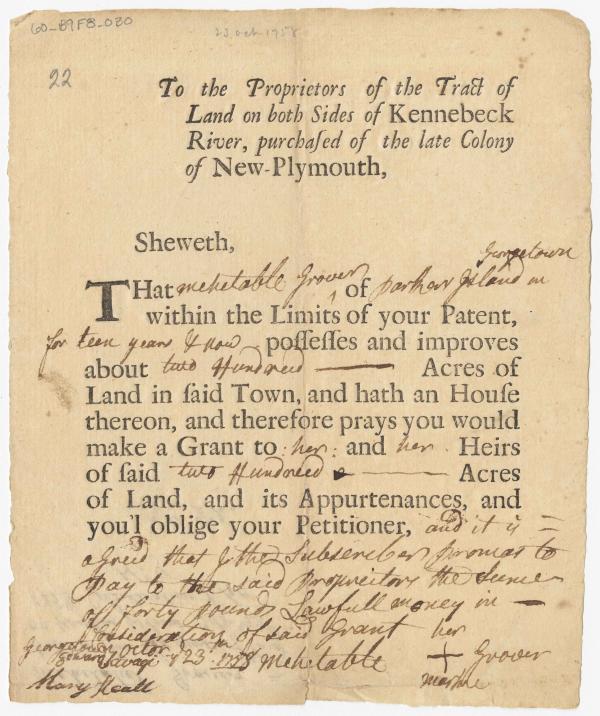 60-B9F8-030
23 oct 1758
22
To the Proprietors of the Tract of
Land on both Sides of Kennebeck
River, purchaſed of the late Colony
of New-Plymouth,
Sheweth,
Georgetown
THat mehetable Grover of parkers Island in
within the Limits of your Patent,
for teen years & now poſſeſſes and improves
about two Hundreed Acres of
Land in ſaid Town, and hath an Houſe
thereon, and therefore prays you would
make a Grant to her and her Heirs
of ſaid two Hundreed Acres
of Land, and its Appurtenances, and
you'l oblige your Petitioner, and it is =
agreid that I the Subscriber promas to
pay to the said Proprietors the Sume
of forty pounds Lawfull money in —
Consideration of said Grant her
Georgetown octor 23th 1758 Mehetable + Grover
Edward Savage marke
Mary Heall